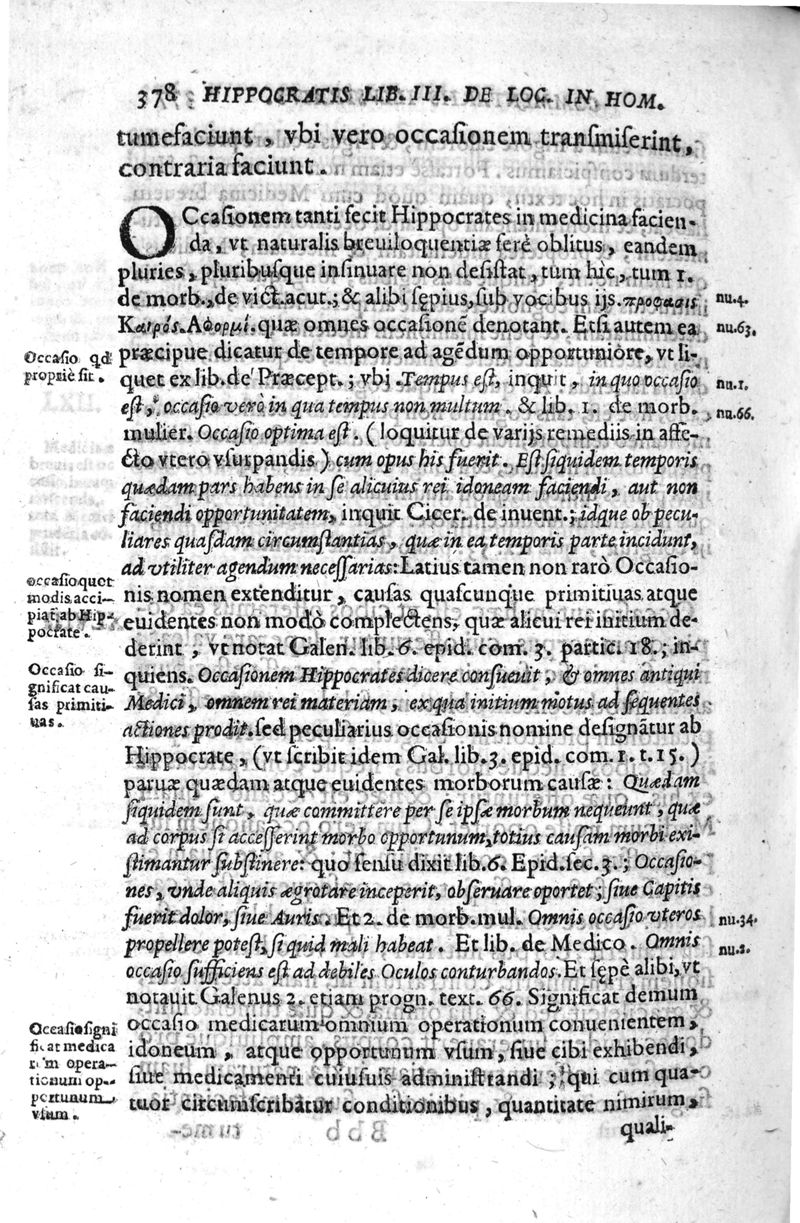 378 HIPPOCRATIS LIB. III. DE LOC. IN HOM.
tumefaciunt, vbi vero occasionem transmiserint,
contraria faciunt.
OCcasionem tanti fecit Hippocrates in medicina facien-
da, vt naturalis breuiloquentiæ ferè oblitus, eandem
pluries, pluribusque insinuare non desistat, tum hic, tum 1.
de morb., de vict. acut.; & alibi sępius, sub vocibus ijs. προφασις
nu.4.
Καιρός. Αφορμί. quæ omnes occasionē denotant. Etsi autem ea
nu.63.
Occasio qd
propriè sit.
præcipue dicatur de tempore ad agēdum opportuniore, vt li-
quet ex lib. de Præcept.; vbi. Tempus est, inquit, in quo occasio
nu.1.
est, occasio verò in qua tempus non multum. & lib. 1. de morb.
nu.66.
mulier. Occasio optima est. (loquitur de varijs remediis in affe-
cto vtero vsurpandis) cum opus his fuerit. Est siquidem temporis
quædam pars habens in se alicuius rei idoneam faciendi, aut non
faciendi opportunitatem, inquit Cicer. de inuent.; idque ob pecu-
liares quasdam circumstantias, quæ in ea temporis parte incidunt,
ad vtiliter agendum necessarias: Latius tamen non rarò Occasio-
occasio quot
modis acci-
piat̄ ab Hip-
pocrate.
nis nomen extenditur, causas quascunque primitiuas atque
euidentes non modò complectens, quæ alicui rei initium de-
derint, vt notat Galen. lib. 6. epid. com. 3. partic. 18.; in-
Occasio si-
gnificat cau-
sas primiti-
uas.
quiens. Occasionem Hippocrates dicere consueuit, & omnes antiqui
Medici, omnem rei materiam, ex qua initium motus ad sequentes
actiones prodit. sed peculiarius occasionis nomine designātur ab
Hippocrate, (vt scribit idem Gal. lib. 3. epid. com. 1. t. 15.)
paruæ quædam atque euidentes morborum causæ: Quædam
siquidem sunt, quæ committere per se ipsæ morbum nequeunt, quæ
ad corpus si accesserint morbo opportunum, totius causam morbi exi-
stimantur substinere: quo sensu dixit lib. 6. Epid. sec. 3.; Occasio-
nes, vnde aliquis ægrotare inceperit, obseruare oportet; siue Capitis
fuerit dolor, siue Auris. Et 2. de morb. mul. Omnis occasio vteros
nu.34.
propellere potest, si quid mali habeat. Et lib. de Medico. Omnis
nu.2.
occasio sufficiens est ad debiles Oculos conturbandos. Et sępè alibi, vt
notauit Galenus 2. etiam progn. text. 66. Significat demum
Occasio signi
ficat medica
rum opera-
tionum op-
pertunum
vsum.
occasio medicarum omnium operationum conuenientem,
idoneum, atque opportunum vsum, siue cibi exhibendi,
siue medicamenti cuiusuis administrandi; qui cum qua-
tuor circumscribatur conditionibus, quantitate nimirum,
quali-